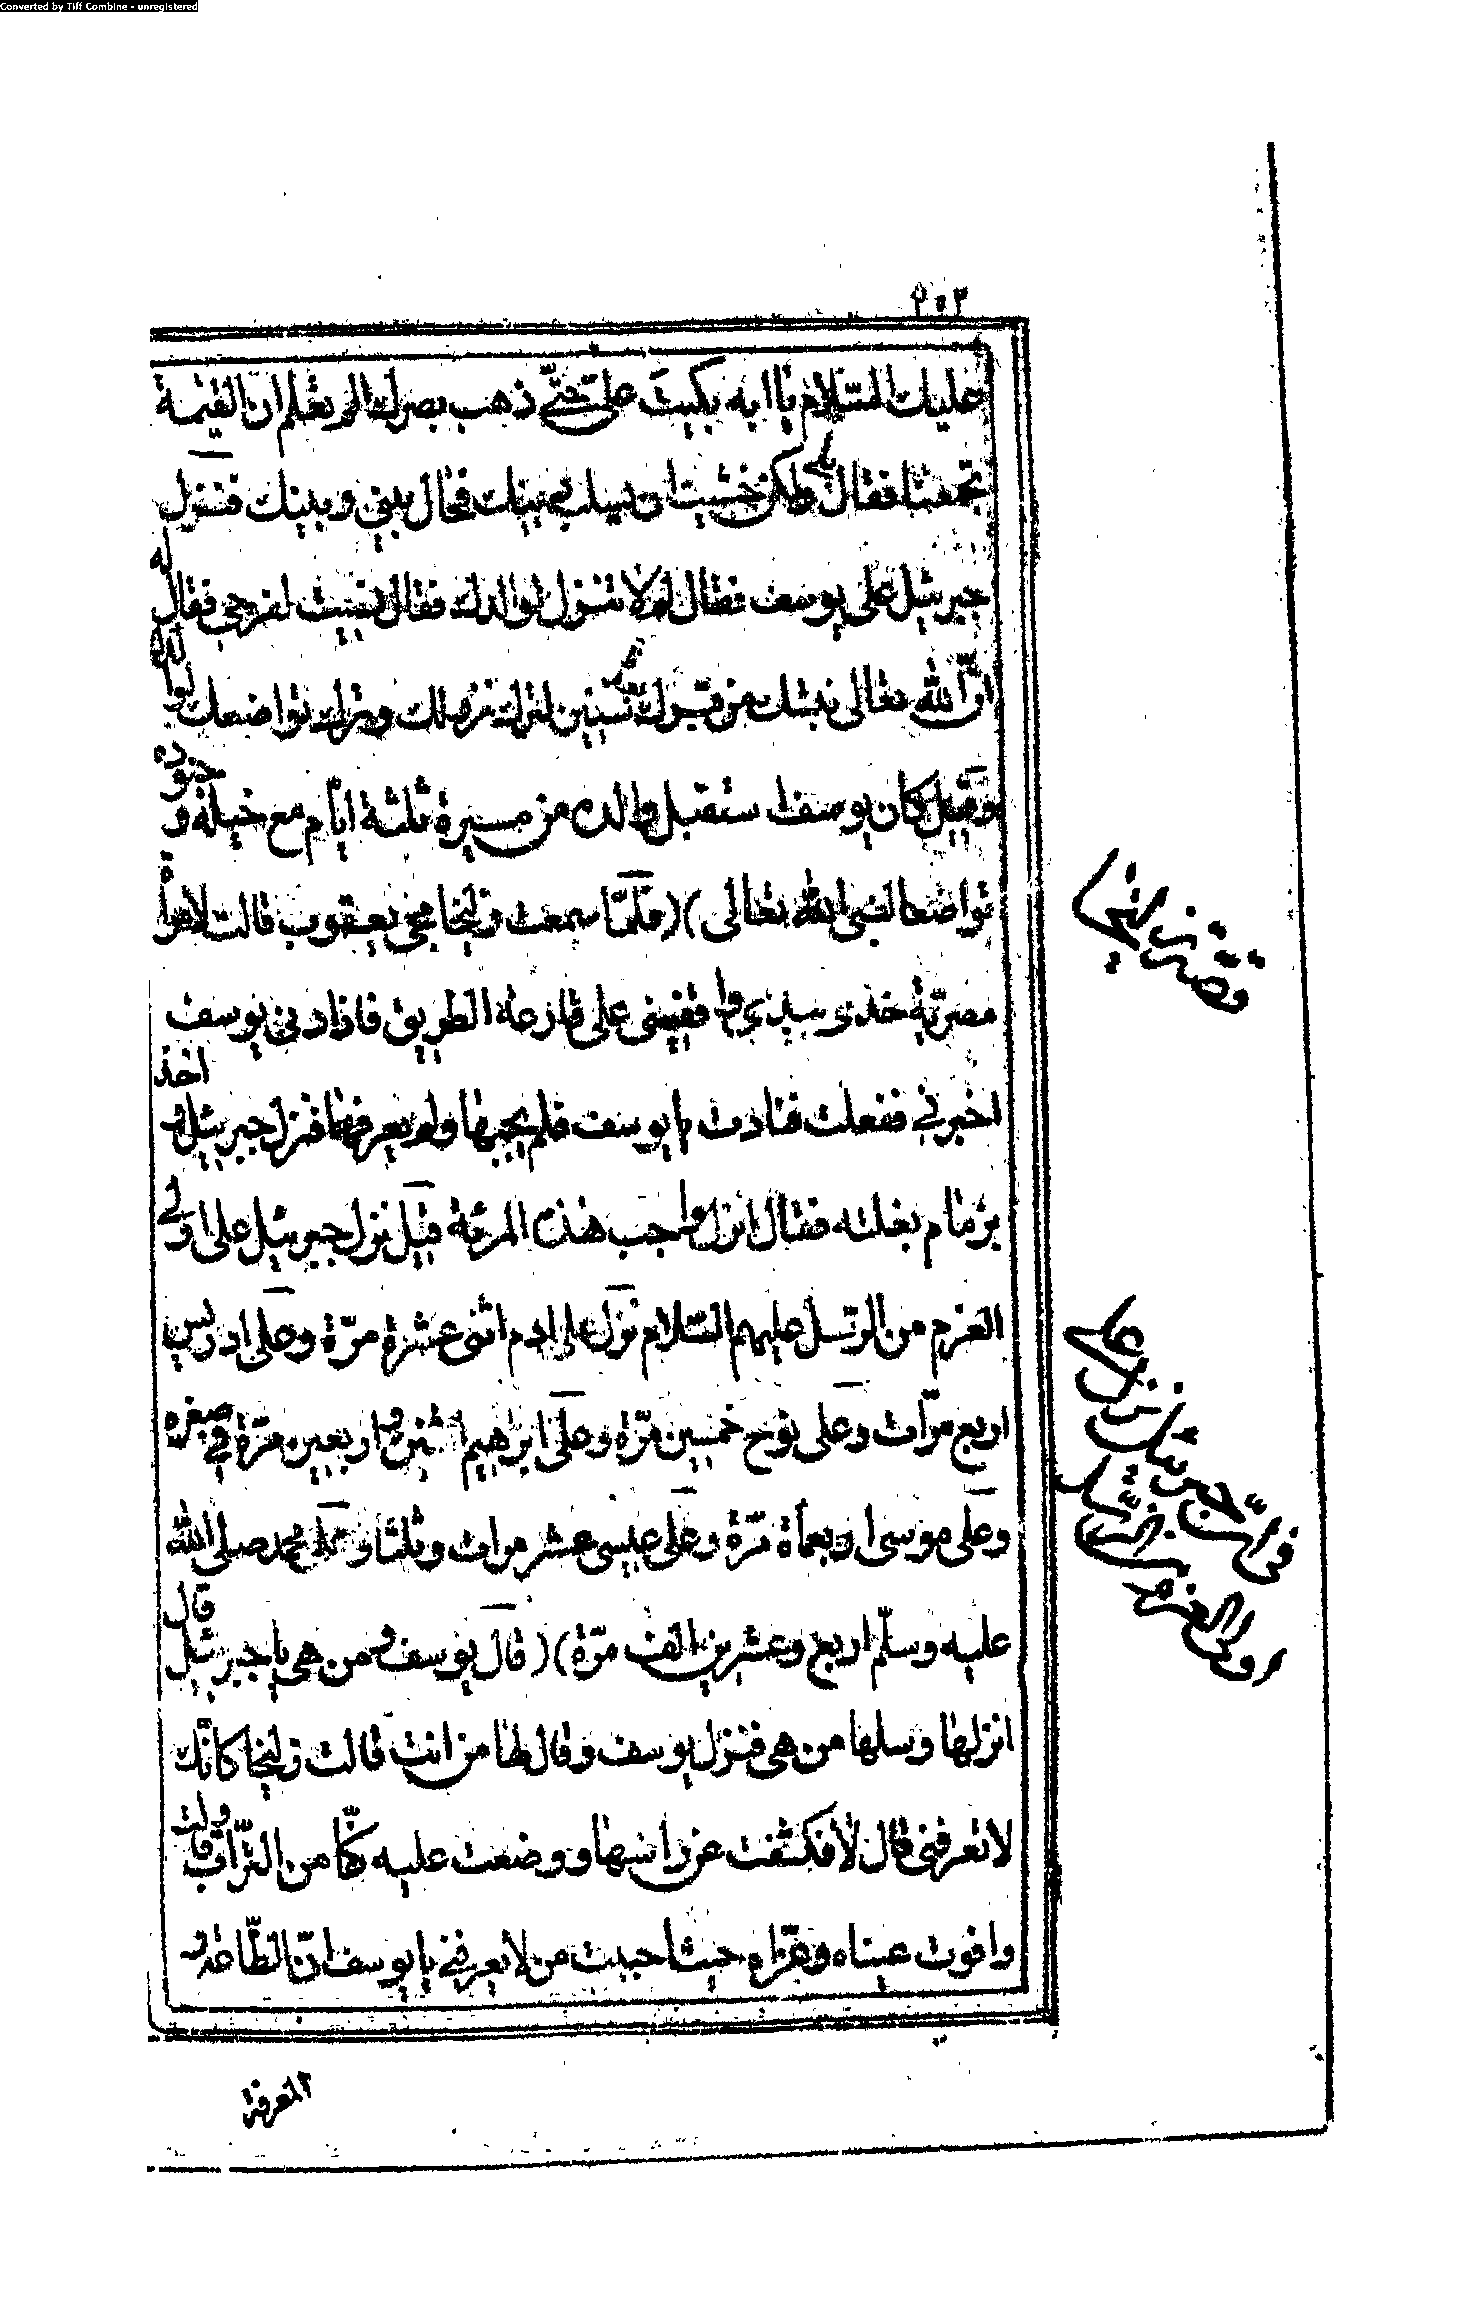 Converted by Tiff Combine - unregistered
٢٠٣
عليك السّلام يا ابه بكيت علىّ حتّى ذهب بصرك الم تعلم ان القيمة
تجمعنا فقال بلى ولكن خشيت ان يسلب دينك فيحال بينى وبينك فنزل
جبرئيل على يوسف فقال له لم لا تنزل لوالدك فقال نسيت لفرحى فقال له
انّ الله تعالى من سنين لترك نزولك وترك تواضعك لوالدك
وقيل كان يوسف استقبل والده من مسيرة ثلثة ايّام مع خيله و جنوده
تواضعا لنبى الله تعالى)(فلمّا سمعت زليخا مجئ يعقوب قالت لامرأة
مصريّة خذى بيدى واقفينى على قارعة الطريق فاذا دنى يوسف
اخبرنى ففعلت فنادت يا يوسف فلم يجبها ولم يعرفها فنزل جبرئيل و اخذ
بزمام بغلته فقال انزل واجب هذه المرءة قيل نزل جبرئيل على اولى
العزم من الرّسل عليهم السّلام نزل على ادم اثنى عشرة مرّة وعلى ادريس
اربع مرّات وعلى نوح خمسين مرّة وعلى ابرهيم اثنين واربعين مرّة فى صغره
وعلى موسى اربعمأة مرّة وعلى عيسى عشر مرات وثلثا وعلى محمد صلى الله
عليه وسلّم اربع وعشرين الف مرّة)(قال يوسف ومن هى يا جبرئيل قال
انزلها وسلها من هى فنزل يوسف وقال لها من انت قالت زليخا كانّك
لا تعرفنى قال لا فكشفت عن راسها ووضعت عليه كفّا من التّراب وقالت
وافوت عيناه وهزّاه حيث احببت من لا يعرفنى يا يوسف انّ الطّاعة و
المعرفة
وقصّة زليخا
فى مرّات جبرئيل نزل على
اولى العزم من الرّسل